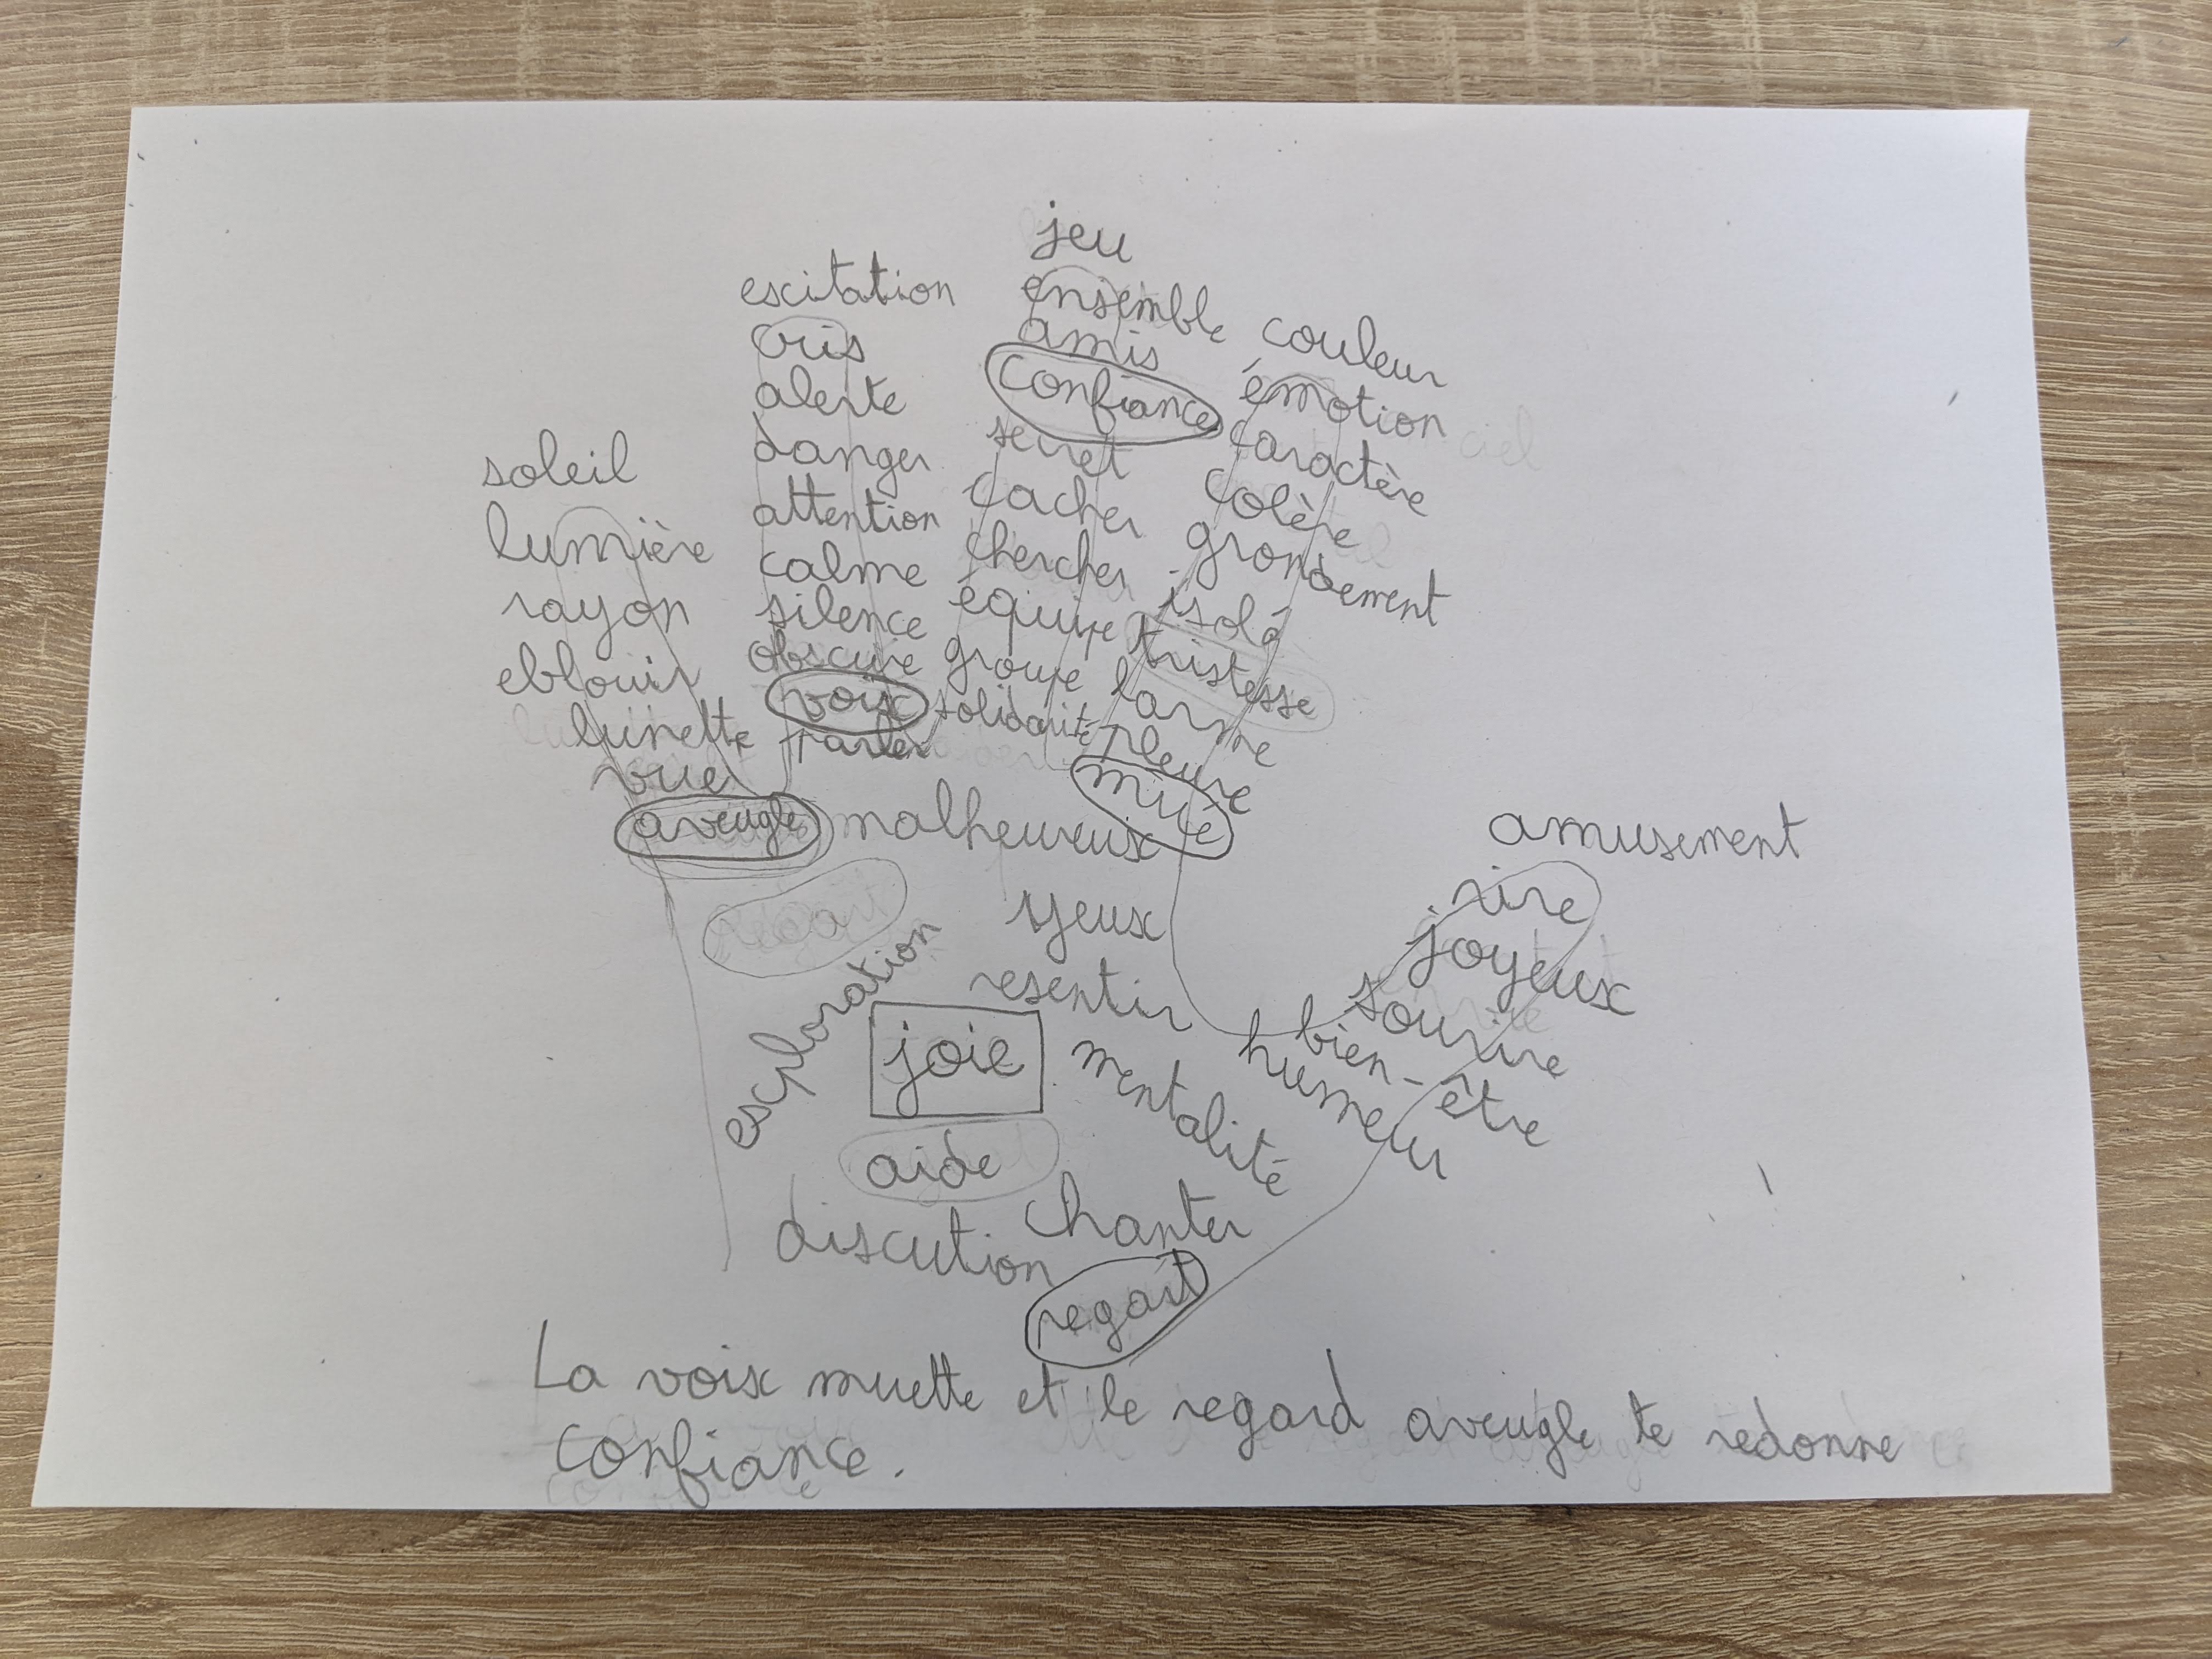 jeu
ensemble
amis
confiance
secret
cacher
chercher
équipe
groupe
solidarité
escitation
cris
alerte
danger
attention
calme
silence
obscure
voix
parler
soleil
lumière
rayon
eblouir
lunette
vue
aveugle
couleur
émotion
caractère
colère
grondement
isolé
tristesse
larme
pleure
malheureux
yeux
resentir
exploration
joie
mentalité
aide
discution
chanter
regart
amusement
rire
joyeux
sourire
bien-être
humeur
La voix muette et le regard aveugle te redonne
confiance.